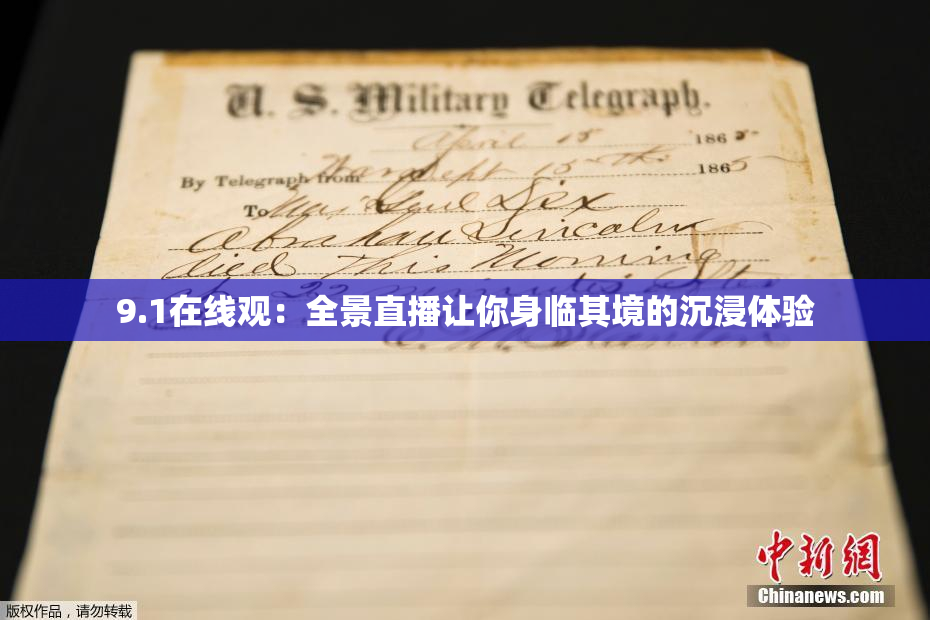 U. S. Military Telegraph.
April 15 1865
By Telegraph from War Dept 15th 1865
To Maj Genl Dix
Abraham Lincoln
died This Morning
at 22 minutes after
9.1在线观：全景直播让你身临其境的沉浸体验
中新網
Chinanews.com
版权作品，请勿转载